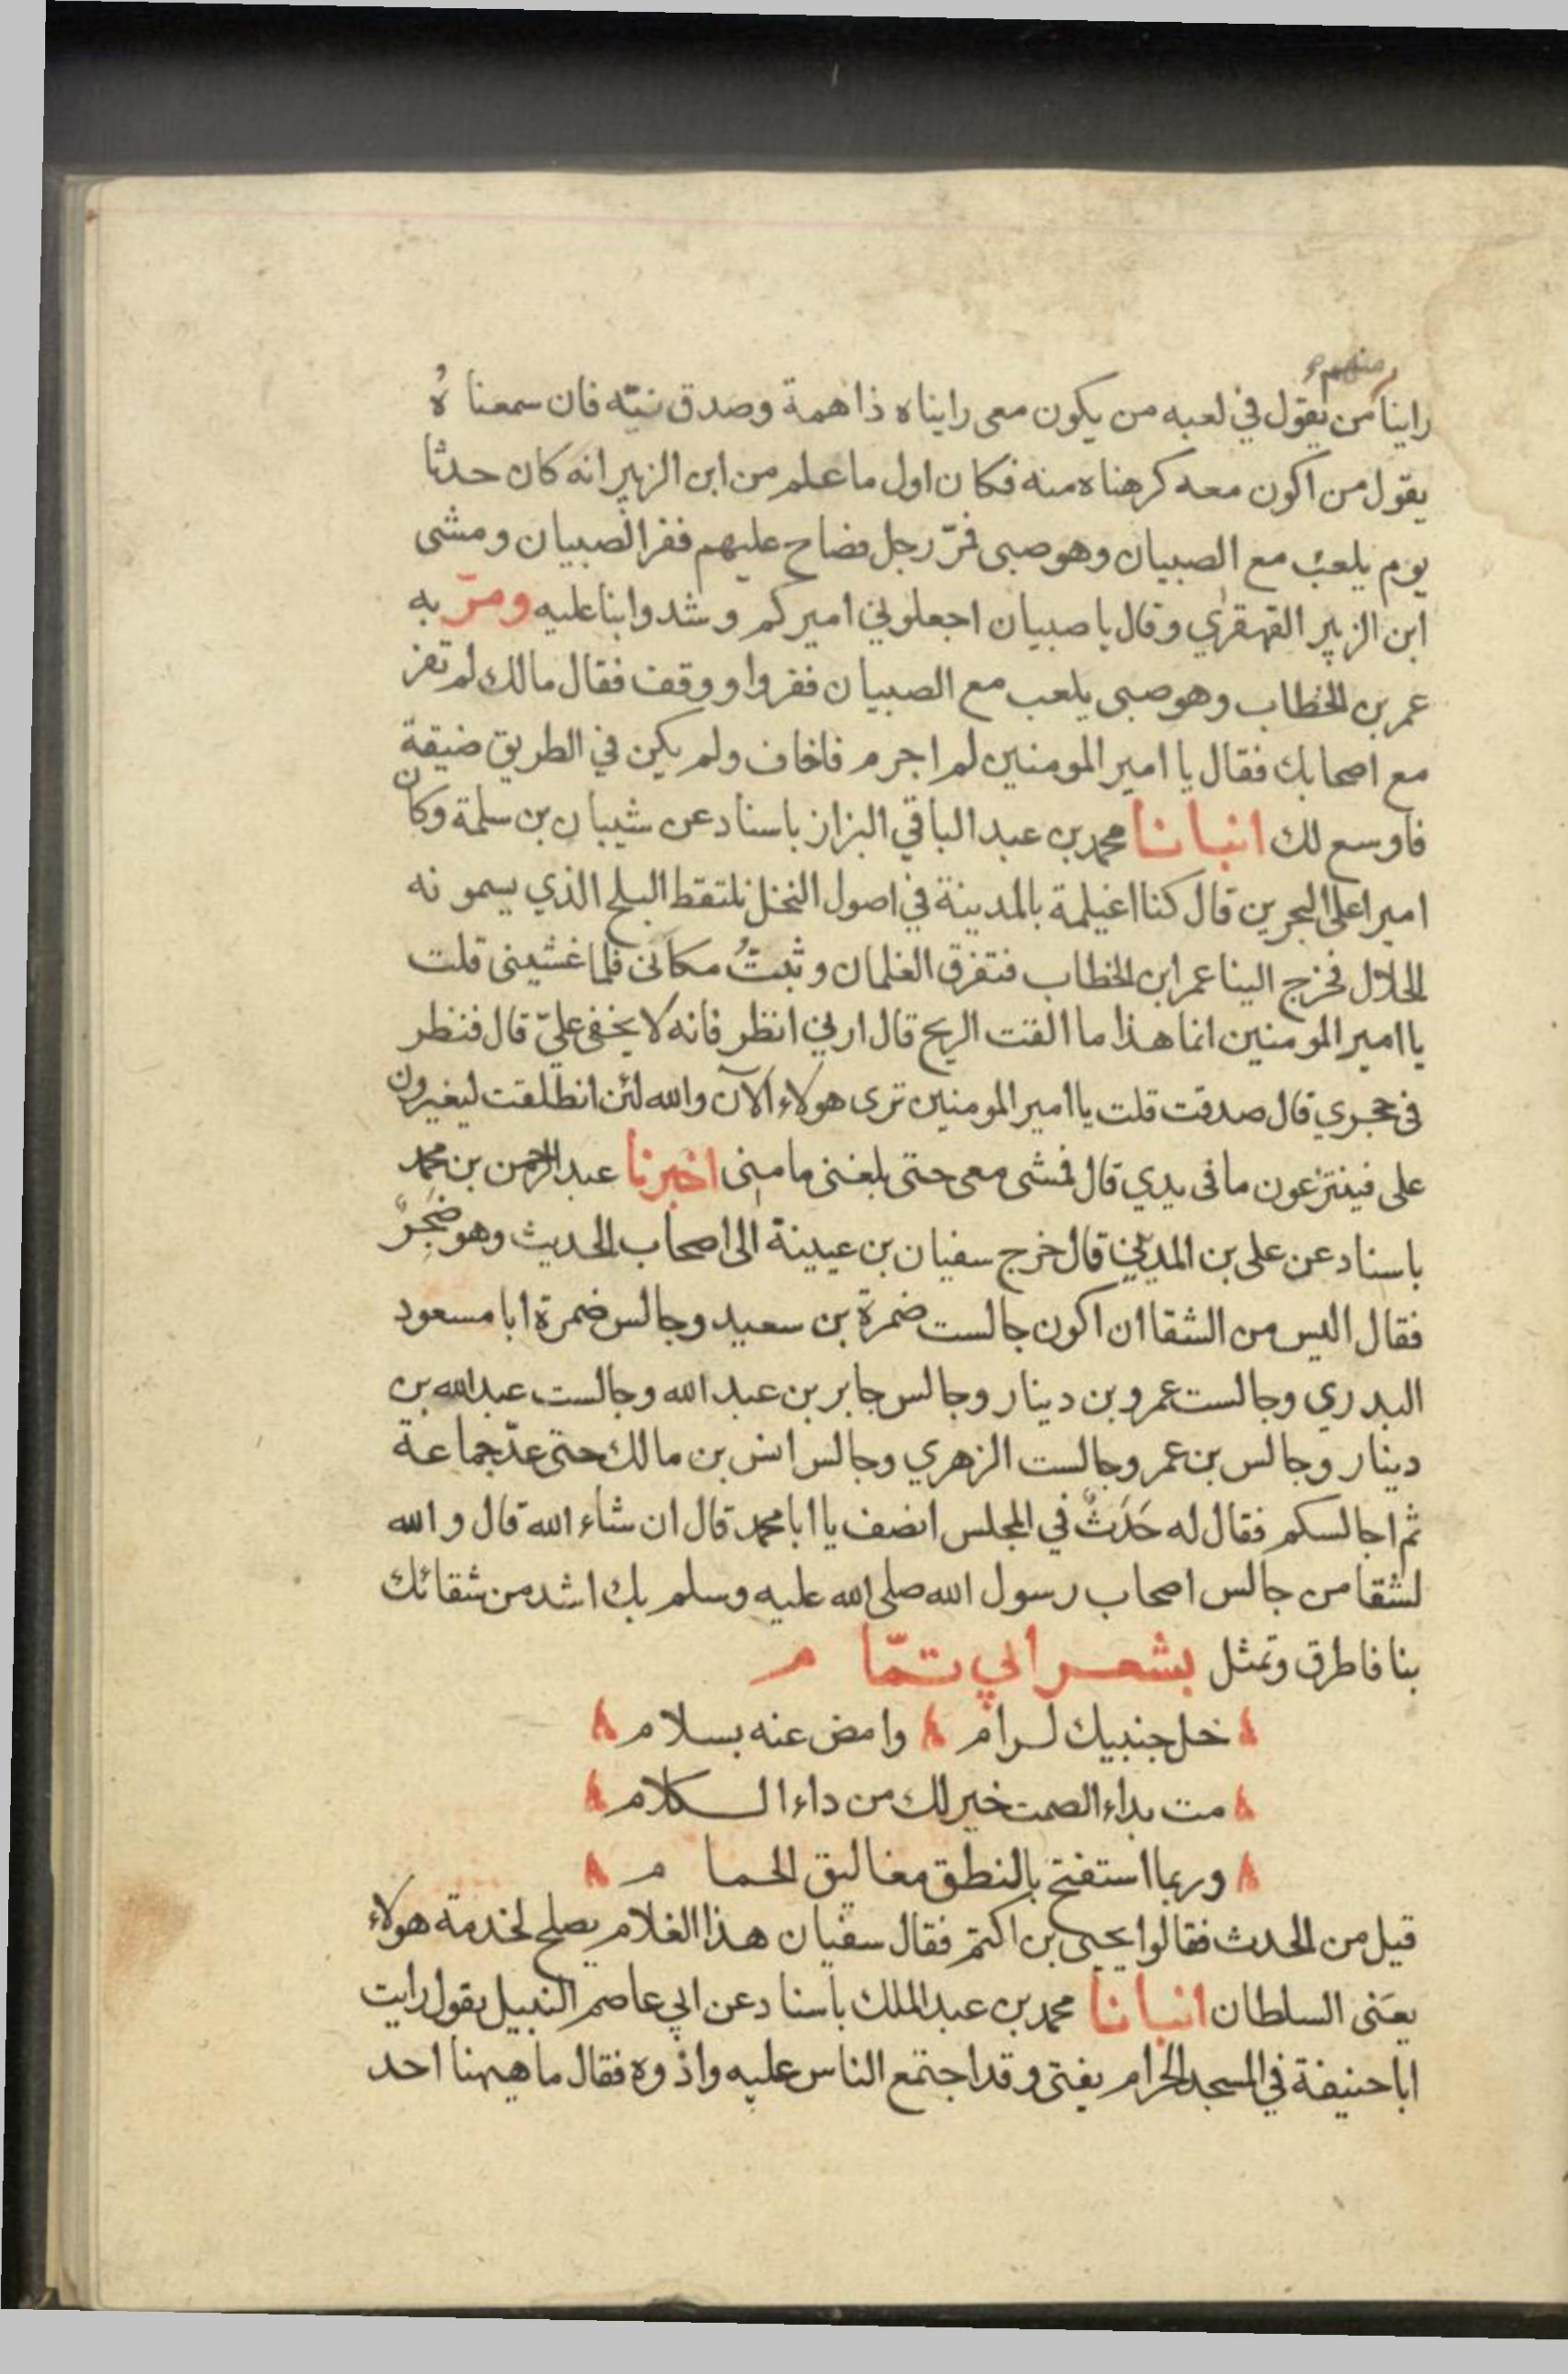 منهم
راينا من يقول في لعبه من يكون معى رايناه ذا همة وصدق نيّه فان سمعناهُ
يقول من اكون معه كرهناه منه فكان اول ما علم من ابن الزبير انه كان حدثا
يوم يلعبُ مع الصبيان وهو صبى فمرّ رجل فصاح عليهم ففر الصبيان ومشى
ابن الزبير القهقري وقال يا صبيان اجعلوني اميركم وشدوا بنا عليه ومرّ به
عمر بن الخطاب وهو صبى يلعب مع الصبيان ففروا ووقف فقال مالك لم تفر
مع اصحابك فقال يا امير المومنين لم اجرم فاخاف ولم يكن في الطريق ضيقة
فاوسع لك انبانا محمد بن عبد الباقي البزاز باسناد عن شيبان بن سلمة وكان
اميرا على البحرين قال كنا اغيلمة بالمدينة في اصول النخل نلتقط البلح الذي يسمونه
الخلال فخرج الينا عمر ابن الخطاب فتفرق الغلمان وثبتُّ مكانى فلما غشينى قلت
يا امير المومنين انما هذا ما القت الريح قال ارني انظر فانه لا يخفى علىّ قال فنظر
فى حجري قال صدقت قلت يا امير المومنين ترى هولاء الآن والله لئن انطلقت ليغيرون
على فينتزعون ما فى يدي قال فمشى معى حتى بلغنى مامنى اخبرنا عبد الرحمن بن محمد
باسناد عن على بن المديني قال خرج سفيان بن عيينة الى اصحاب الحديث وهو ضَجِرٌ
فقال اليس من الشقا ان اكون جالست ضمرة بن سعيد وجالس ضمرة ابا مسعود
البدري وجالست عمرو بن دينار وجالس جابر بن عبد الله وجالست عبد الله بن
دينار وجالس بن عمر وجالست الزهري وجالس انس بن مالك حتى عدّ جماعة
ثم اجالسكم فقال له حَدَثٌ في المجلس انصف يا ابا محمد قال ان شاء الله قال والله
لشقا من جالس اصحاب رسول الله صلى الله عليه وسلم بك اشد من شقائك
بنا فاطرق وتمثل بشعر ابي تمّام
خل جنبيك لرام وامض عنه بسلام
مت بداء الصمت خير لك من داء الكلام
وربما استفتح بالنطق مغاليق الحمام
قيل من الحدث فقالوا يحيى بن اكتم فقال سفيان هذا الغلام يصلح لخدمة هولاء
يعَنى السلطان انبانا محمد بن عبد الملك باسناد عن ابي عاصم النبيل يقول رايت
ابا حنيفة في المسجد الحرام يفتى وقد اجتمع الناس عليه واذوه فقال ما هيهنا احد